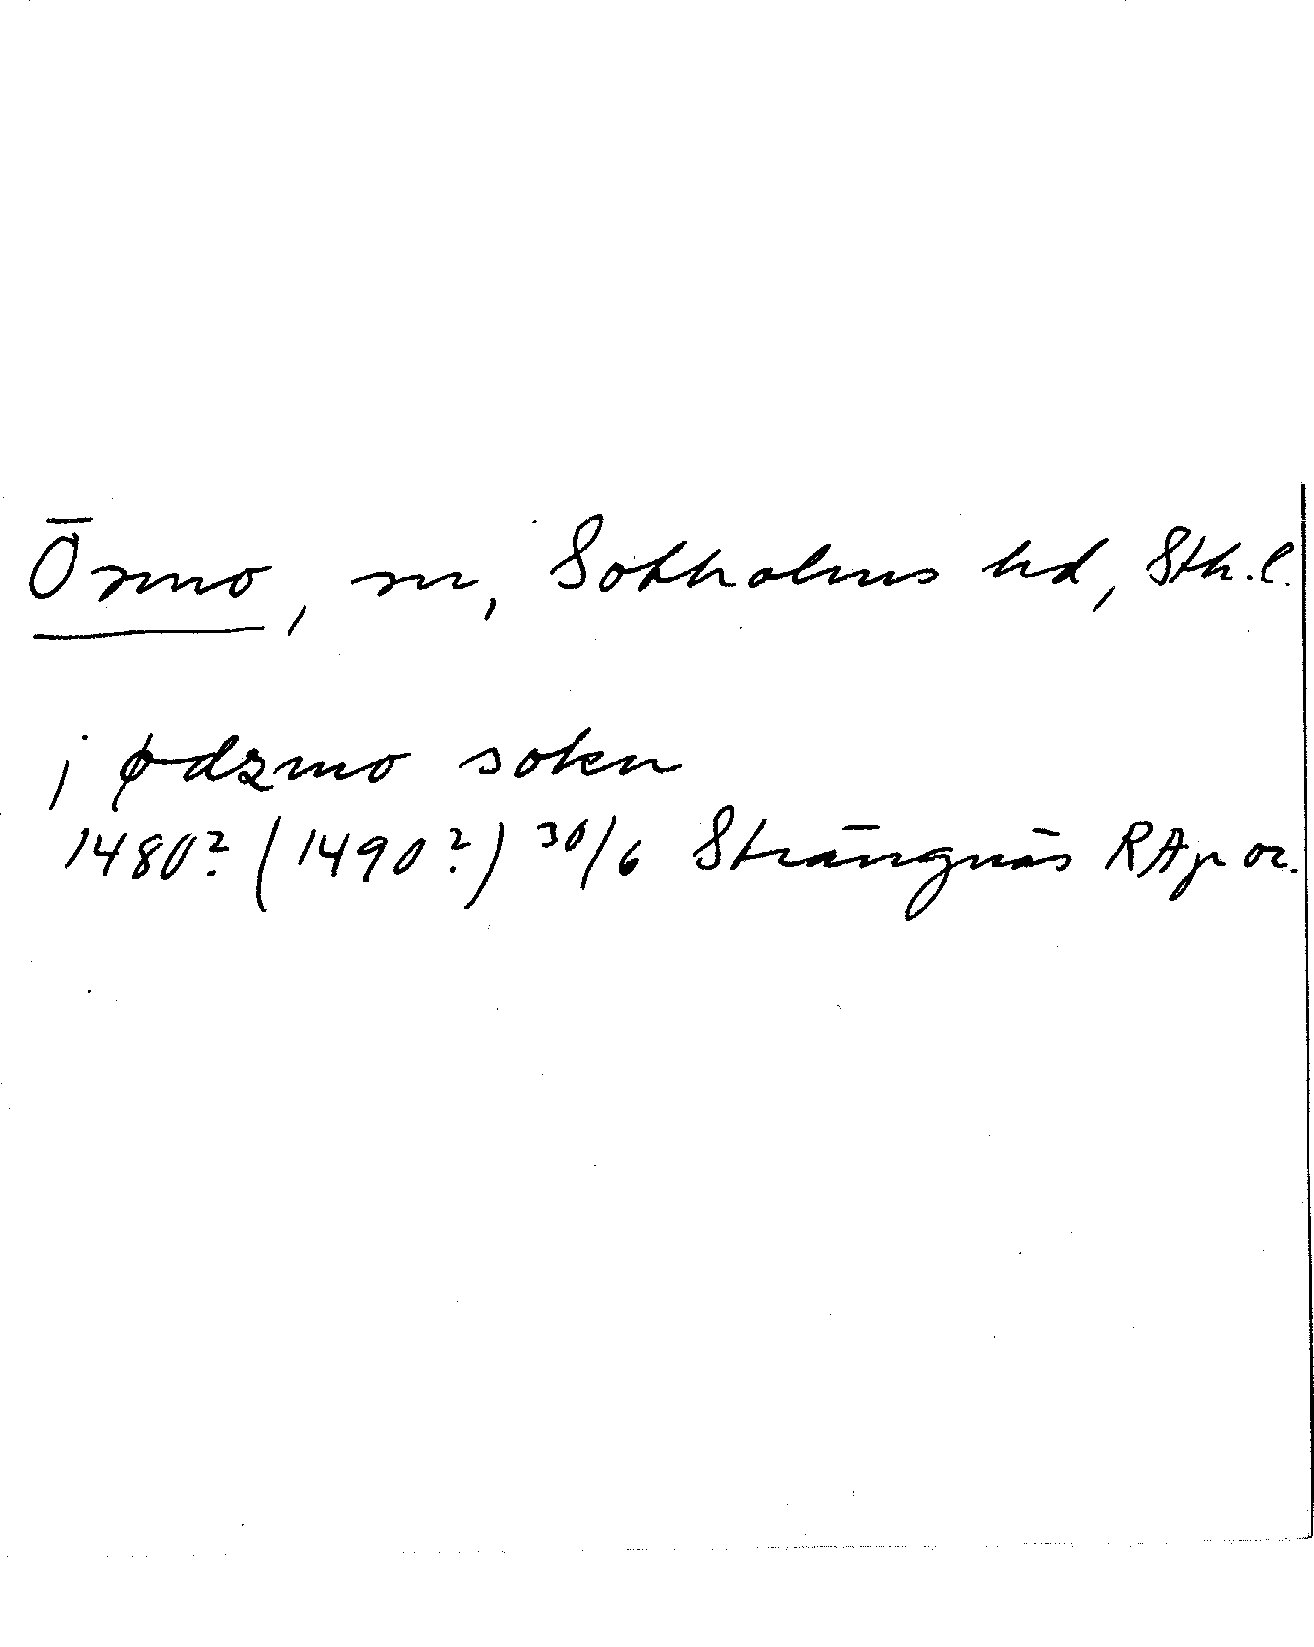 Ösmo, sn, Sotholms hd, Sth.l.
j ødzmo sokn
1480? (1490?) 30/6 Strängnäs RAp or.